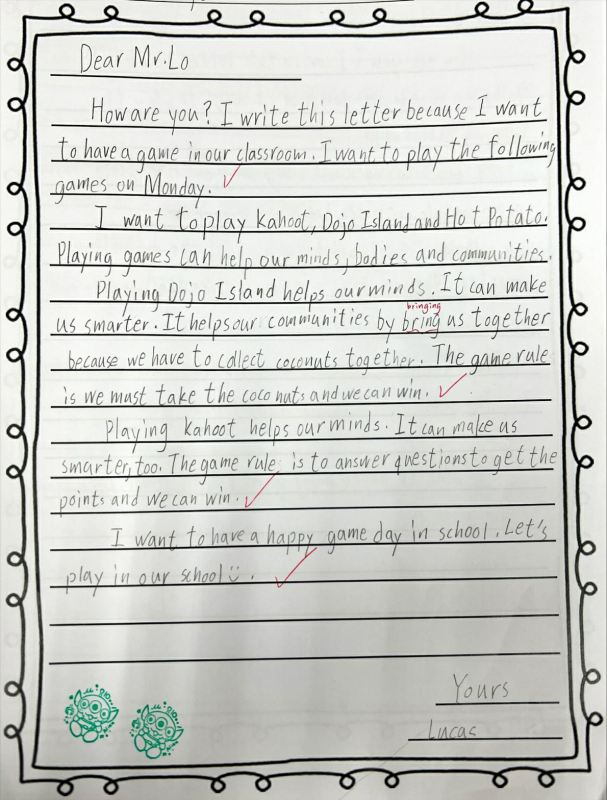 Dear Mr.Lo
How are you? I write this letter because I want
to have a game in our classroom. I want to play the following
games on Monday.
I want to play kahoot, Dojo Island and Hot Potato.
Playing games can help our minds, bodies and communities.
Playing Dojo Island helps our minds. It can make
bringing
us smarter. It helps our communities by bring us together
because we have to collect coconuts together. The game rule
is we must take the coconuts and we can win.
Playing kahoot helps our minds. It can make us
smarter, too. The game rule is to answer questions to get the
points and we can win.
I want to have a happy game day in school. Let's
play in our school.
Yours
Lucas